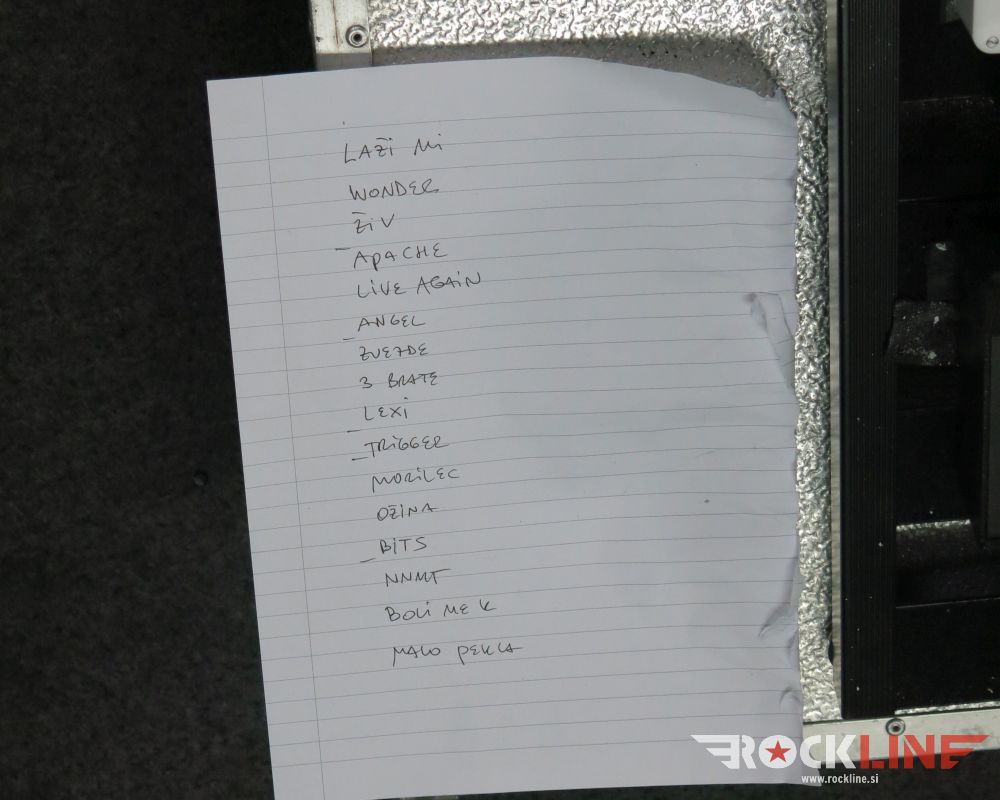 LAŽI MI
WONDER
ŽIV
APACHE
LIVE AGAIN
ANGEL
ZVEZDE
3 BRATE
LEXI
TRIGGER
MORILEC
OŽINA
BITS
NNMT
BOLI ME K
MALO PEKLA
ROCKLINE
www.rockline.si